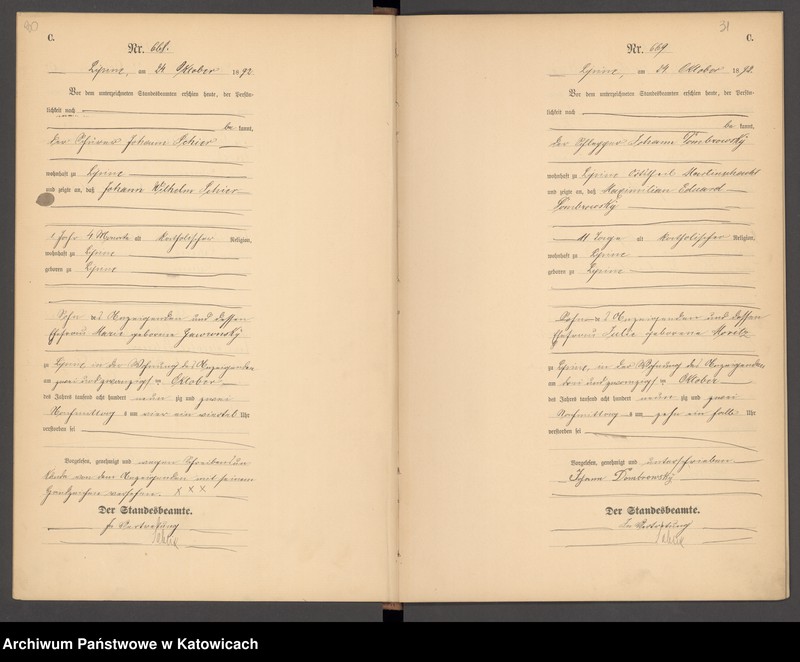 80
C.
Nr. 668.
Lipine, am 24 Oktober 1892.
Vor dem unterzeichneten Standesbeamten erschien heute, der Persön-
lichkeit nach
be kannt,
der Johann
wohnhaft zu Lipine
und zeigte an, daß Johann Wilhelm
1 Jahr 4 Monate alt katholischer Religion,
wohnhaft zu Lipine
geboren zu Lipine
Sohn des Anzeigenden und dessen
Ehefrau Marie geborene Jaworowsky
zu Lipine, in der Wohnung des Anzeigenden
am zwei und zwanzigsten Oktober
des Jahres tausend acht hundert neun zig und zwei
Nachmittag s um vier ein viertel Uhr
verstorben sei
Vorgelesen, genehmigt und wegen Schreibensun
kunde von dem Anzeigenden mit seinem
Handzeichen versehen. x x x
Der Standesbeamte.
In Vertretung
31
C.
Nr. 669
Lipine, am 24 Oktober 1892.
Vor dem unterzeichneten Standesbeamten erschien heute, der Persön-
lichkeit nach
be kannt,
der Schlepper Johann Dombrowsky
wohnhaft zu Lipine
und zeigte an, daß Maximilian Eduard
Dombrowsky
11 Tage alt katholischer Religion,
wohnhaft zu Lipine
geboren zu Lipine
Sohn des Anzeigenden und dessen
Ehefrau Julie geborene Moritz
zu Lipine, in der Wohnung des Anzeigenden
am drei und zwanzigsten Oktober
des Jahres tausend acht hundert neun zig und zwei
Nachmittag s um zehn ein halb Uhr
verstorben sei
Vorgelesen, genehmigt und unterschrieben
Johann Dombrowsky
Der Standesbeamte.
In Vertretung
Archiwum Państwowe w Katowicach